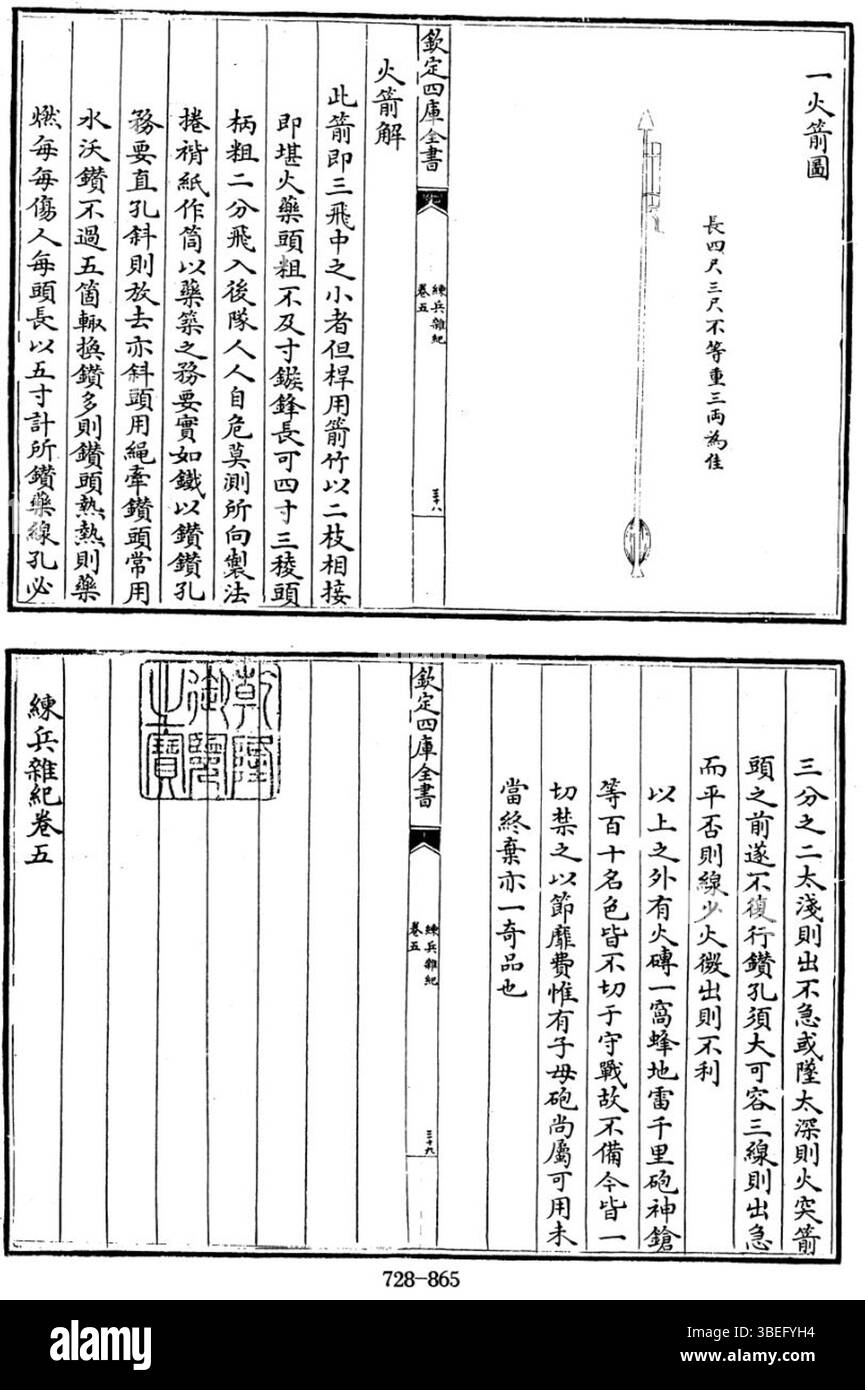 一火箭圖
長四尺三尺不等重三兩為佳
欽定四庫全書
練兵雜紀
卷五
三十八
火箭解
此箭即三飛中之小者但桿用箭竹以二枝相接
即堪火藥頭粗不及寸鏃鋒長可四寸三稜頭
柄粗二分飛入後隊人人自危莫測所向製法
捲褙紙作筒以藥築之務要實如鐵以鑽鑽孔
務要直孔斜則放去亦斜頭用繩牽鑽頭常用
水沃鑽不過五箇輙換鑽多則鑽頭熱熱則藥
燃每每傷人每頭長以五寸計所鑽藥線孔必
三分之二太淺則出不急或墜太深則火突箭
頭之前遂不復行鑽孔須大可容三線則出急
而平否則線少火微出則不利
以上之外有火磚一窩蜂地雷千里砲神鎗
等百十名色皆不切于守戰故不備今皆一
切禁之以節靡費惟有子母砲尚屬可用未
當終棄亦一奇品也
欽定四庫全書
練兵雜紀
卷五
三十九
乾隆御覽之寶
練兵雜紀卷五
728-865
alamy
Image ID: 3BEFYH4
www.alamy.com